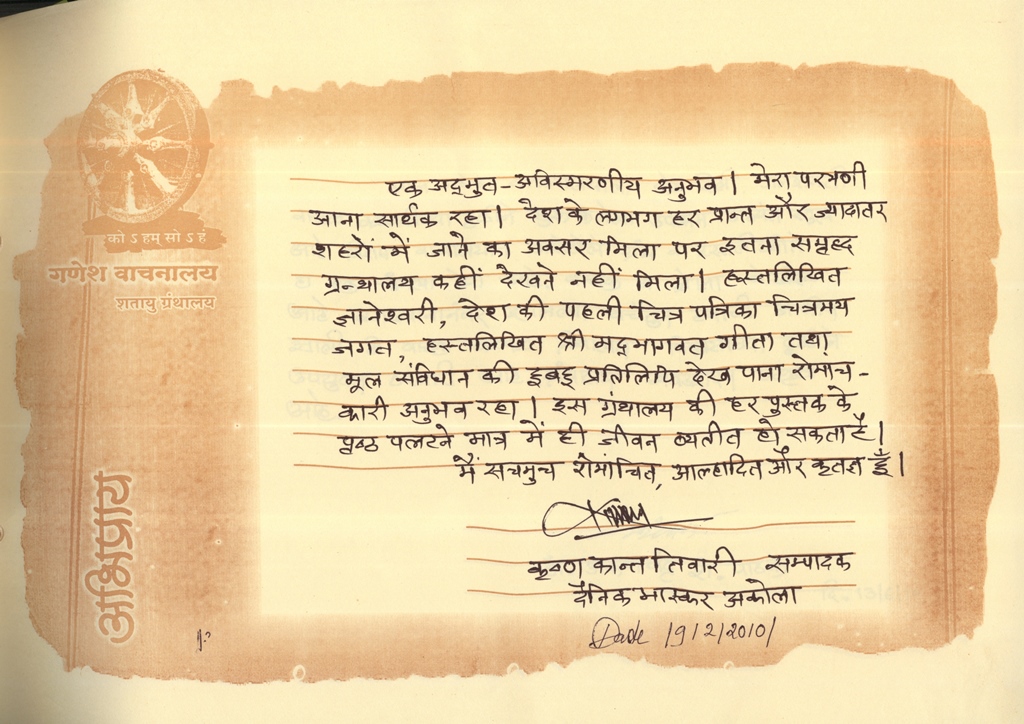 को ऽ हम् सो ऽ ह
गणेश वाचनालय
शतायु ग्रंथालय
एक अद्भुत - अविस्मरणीय अनुभव। मेरा परभणी
आना सार्थक रहा। देश के लगभग हर प्रान्त और ज्यादातर
शहरों में जाने का अवसर मिला पर इतना समृद्ध
ग्रन्थालय कहीं देखने नहीं मिला। हस्तलिखित
ज्ञानेश्वरी, देश की पहली चित्र पत्रिका चित्रमय
जगत, हस्तलिखित श्री मद्भागवत गीता तथा
मूल संविधान की हुबहु प्रतिलिपि देख पाना रोमांच -
कारी अनुभव रहा। इस ग्रंथालय की हर पुस्तक के
पृष्ठ पलटने मात्र में ही जीवन व्यतीत हो सकता है।
मैं सचमुच रोमांचित, आल्हादित और कृतज्ञ हूँ।
कृष्ण कान्त तिवारी सम्पादक
दैनिक भास्कर अकोला
Date 19/2/2010/
अभिप्राय